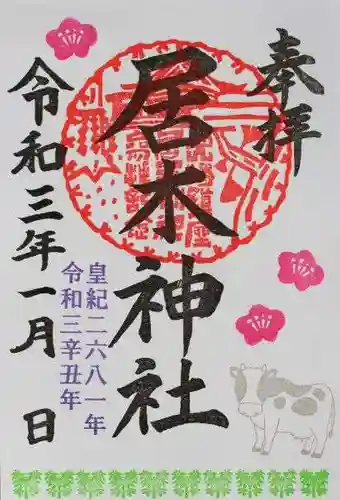 奉拝
居木神社
皇紀二六八一年
令和三辛丑年
令和三年一月 日